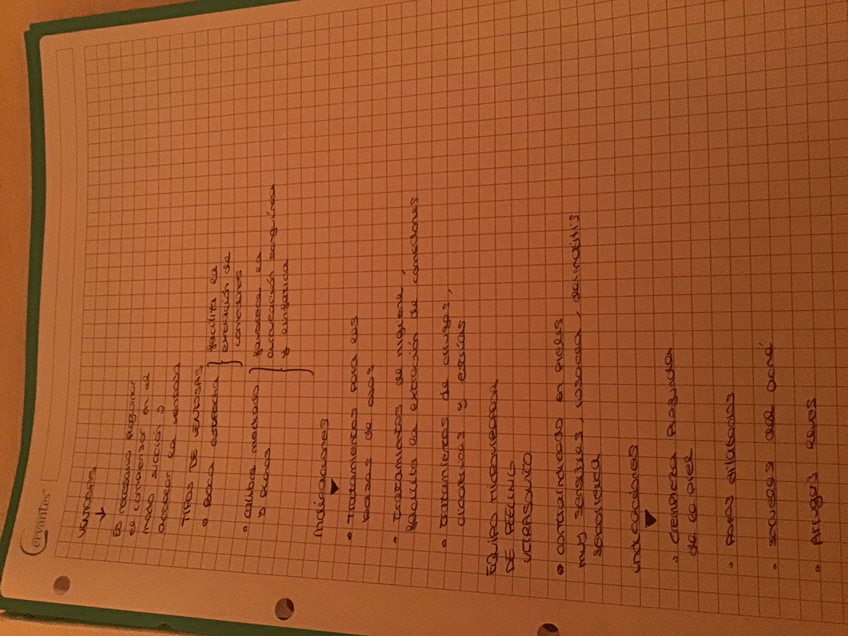 Cervantes
VENTOSAS
Es necesario pulverizar
de comenzar en el
modo succión y
acoplar la ventosa
TIPOS DE VENTOSAS
• boca estrecha { facilita la
extracción de
comedones
• calibre mediano
y planos { favorece la
circulación sanguínea
y linfática
Indicaciones
• tratamientos para las
bolsas de ojos
• tratamientos de higiene,
facilita la extracción de comedones
• tratamientos de arrugas,
cicatrices y estrías
EQUIPO MICROVIBRADOR
DE PEELING
ULTRASÓNICO
• contraindicado en pieles
muy sensibles, rosácea, dermatitis
seborreica
indicaciones
• limpieza profunda
de la piel
• poros dilatados
• secuelas del acné
• Arrugas leves